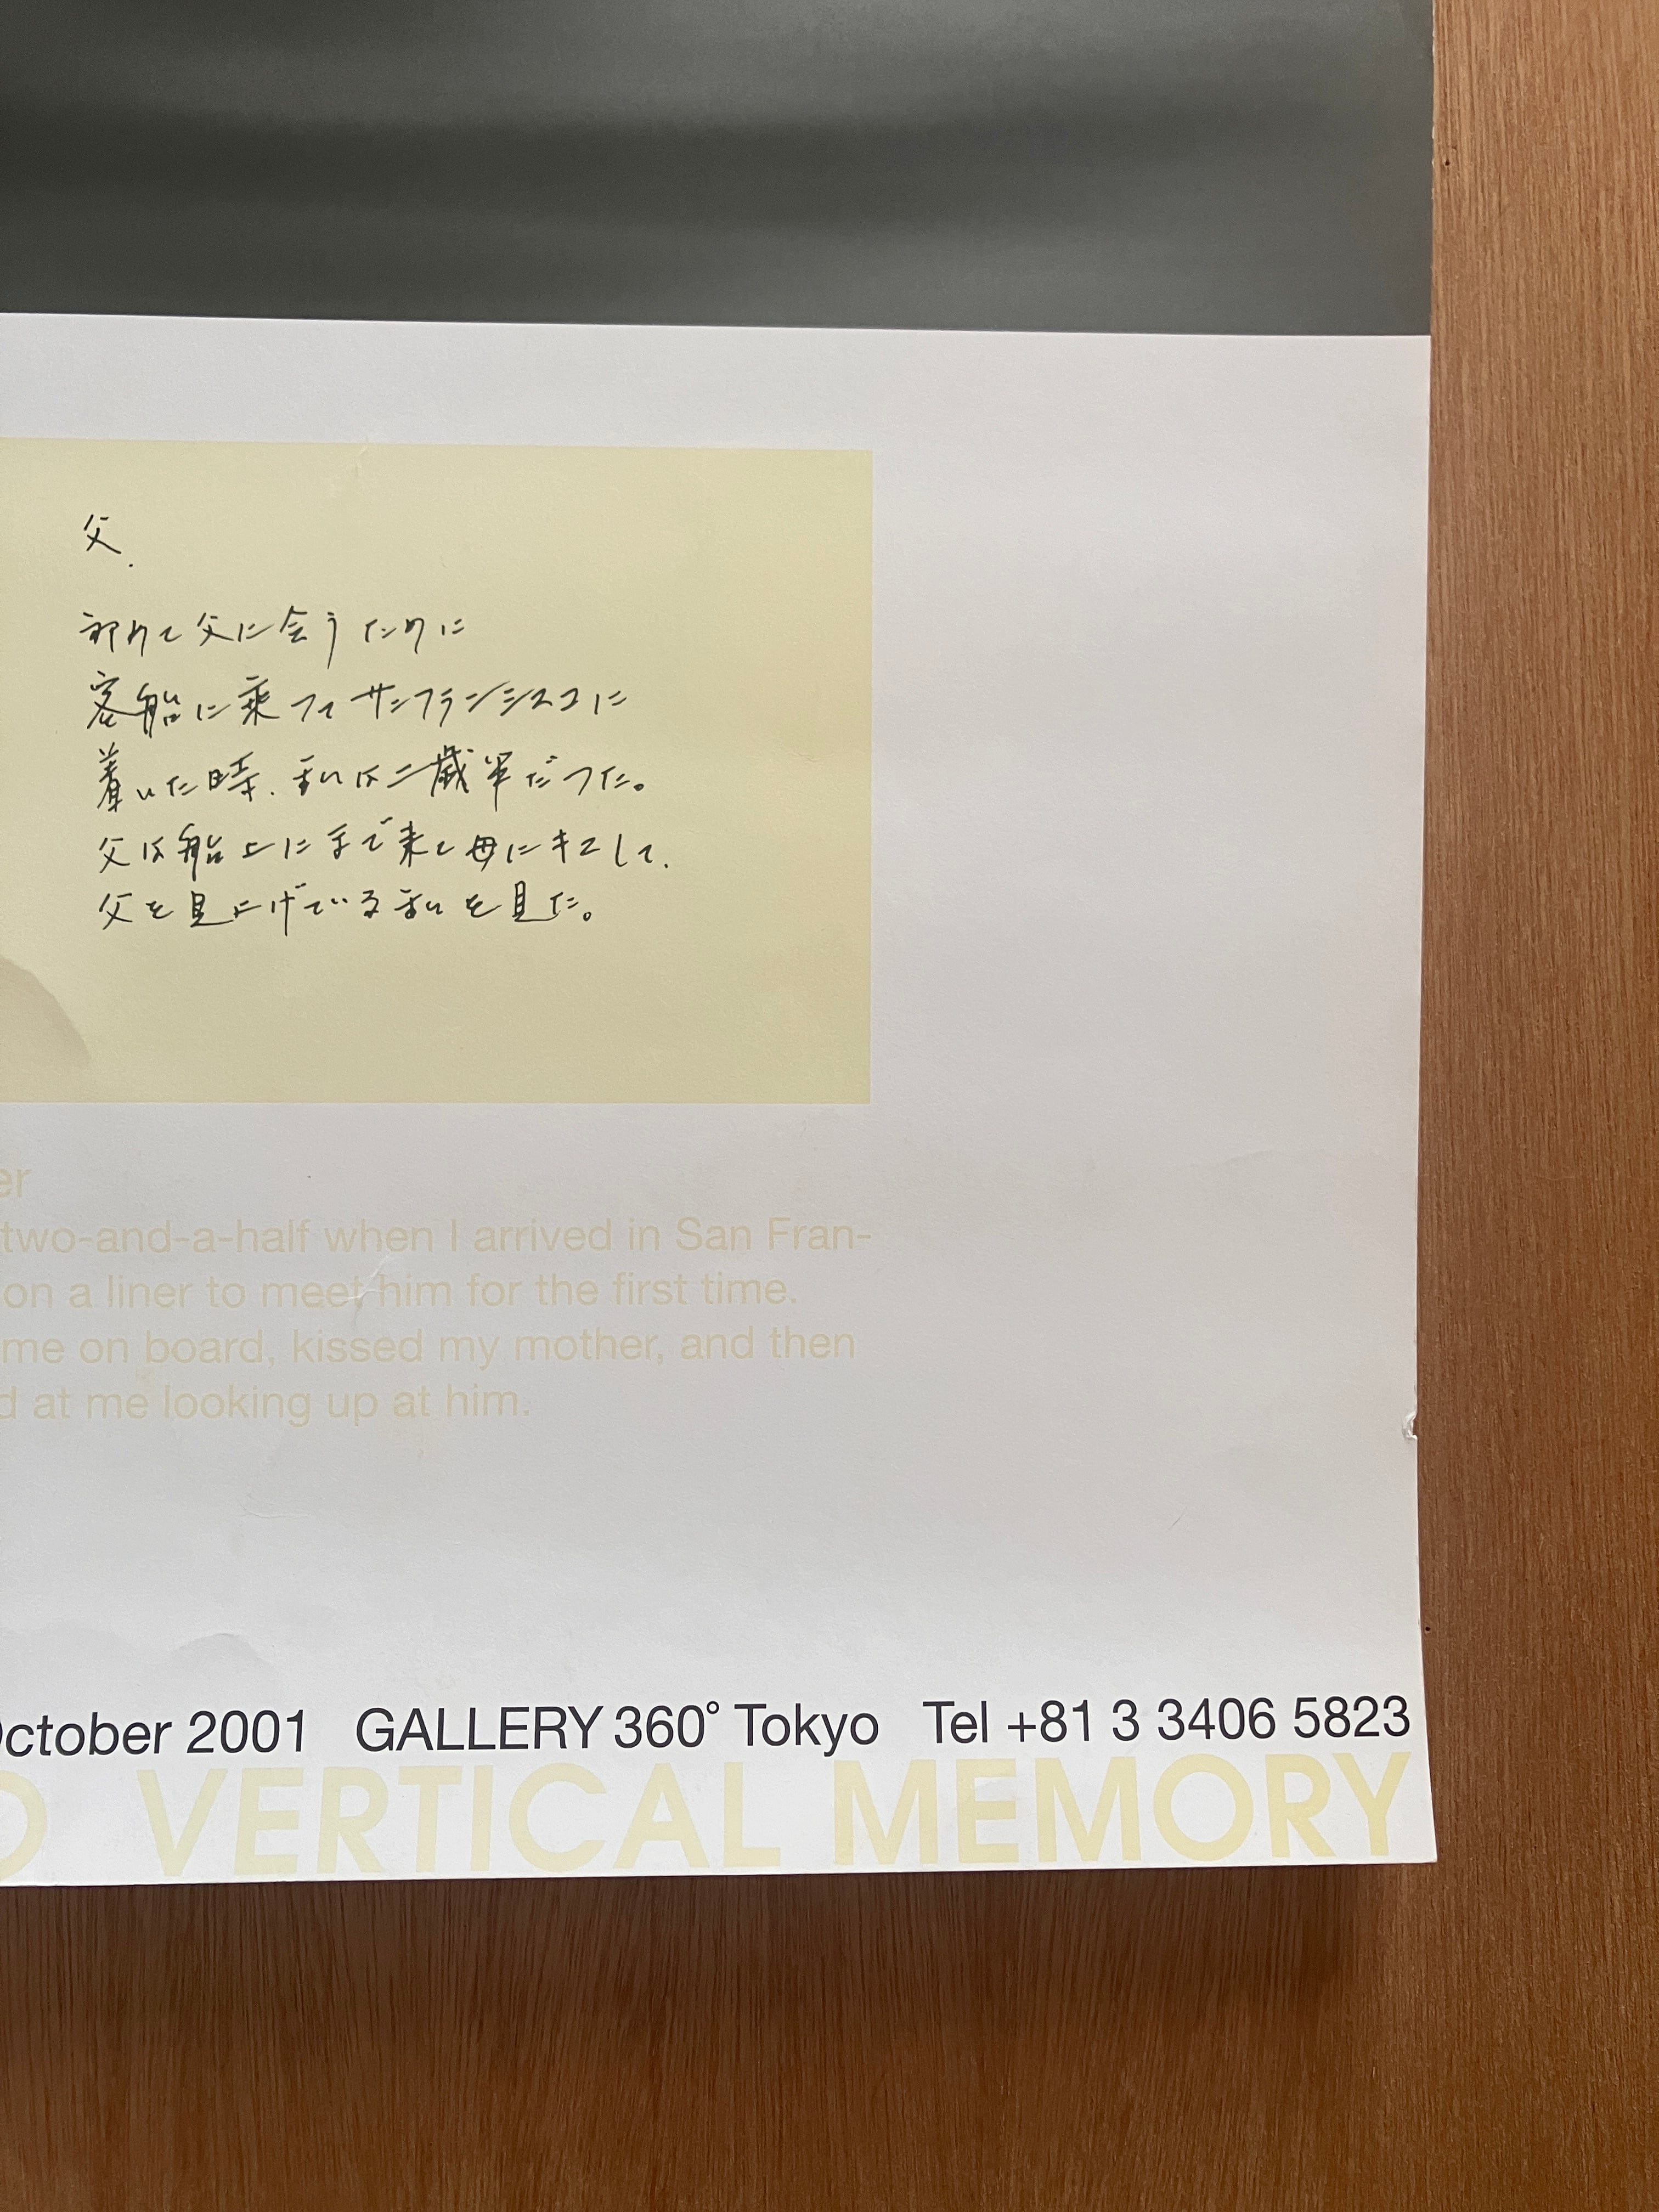 父.
初めて父に会うために
客船に乗ってサンフランシスコに
着いた時、私は二歳半だった。
父は船上にまで来て母にキスして、
父を見上げている私を見た。
er
two-and-a-half when I arrived in San Fran-
on a liner to meet him for the first time.
me on board, kissed my mother, and then
d at me looking up at him.
ctober 2001 GALLERY 360° Tokyo Tel +81 3 3406 5823
O VERTICAL MEMORY